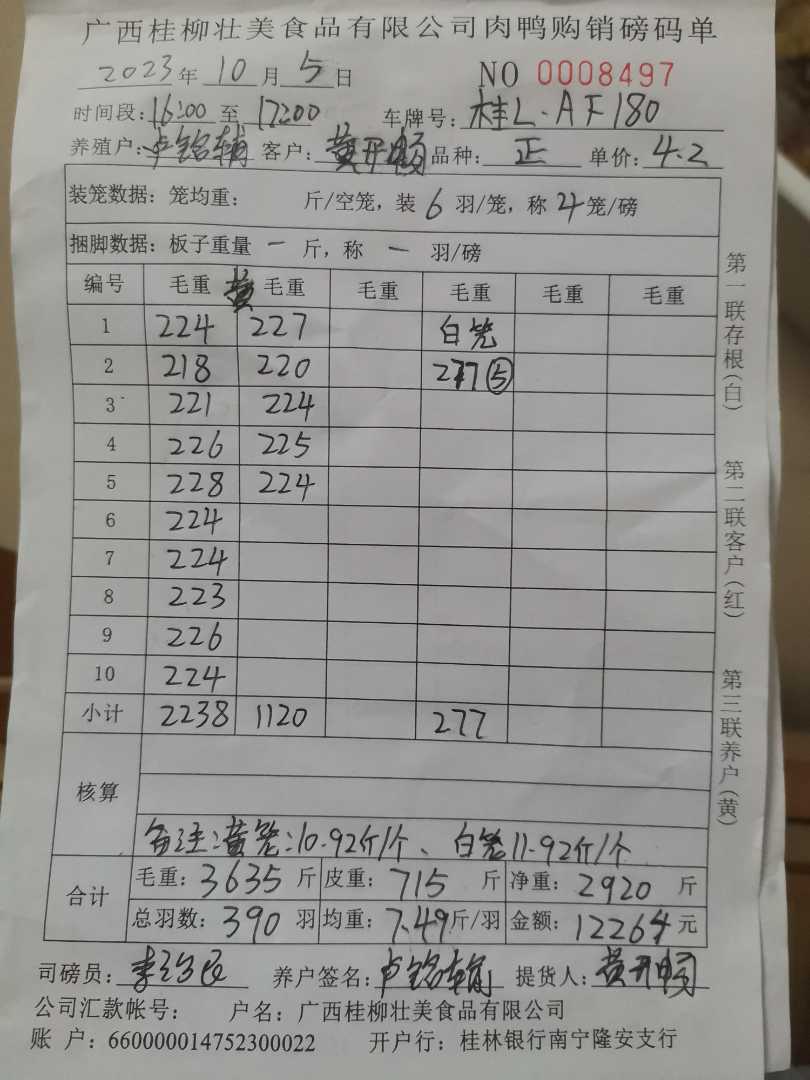 广西桂柳壮美食品有限公司肉鸭购销磅码单
2023年10月5日 NO 0008497
时间段:16:00至17:00 车牌号:桂L·AF180
养殖户:卢铭辅 客户:黄开畅 品种:正 单价:4.2
装笼数据:笼均重: 斤/空笼,装6羽/笼,称4笼/磅
捆脚数据:板子重量一斤,称一羽/磅
编号 毛重 黄 毛重 毛重 毛重 毛重 毛重
1 224 227 白笼
2 218 220 277⑤
3 221 224
4 226 225
5 228 224
6 224
7 224
8 223
9 226
10 224
小计 2238 1120 277
核算
备注:黄笼:10.92斤/个、白笼11.92斤/个
合计 毛重:3635斤 皮重:715斤 净重:2920斤
总羽数:390羽 均重:7.49斤/羽 金额:12264元
司磅员: 养户签名:卢铭辅 提货人:黄开畅
公司汇款帐号: 户名:广西桂柳壮美食品有限公司
账 户:660000014752300022 开户行:桂林银行南宁隆安支行
第一联存根(白) 第二联客户(红) 第三联养户(黄)